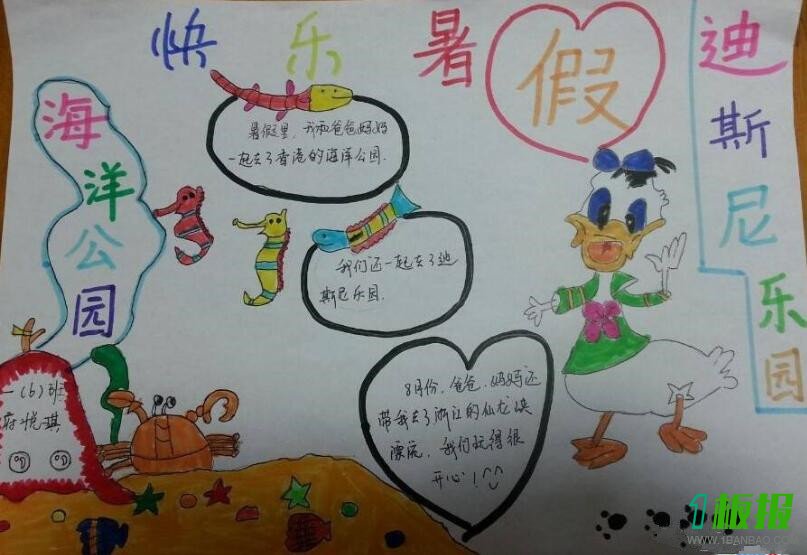 快乐暑假
海洋公园
迪斯尼乐园
暑假里，我和爸爸妈妈
一起去了香港的海洋公园.
我们还一起去了迪
斯尼乐园.
8月份，爸爸、妈妈还
带我去了浙江的仙龙峡
漂流，我们玩得很
开心！
一(6)班
府悦琪
1板报
WWW.1BANBAO.COM